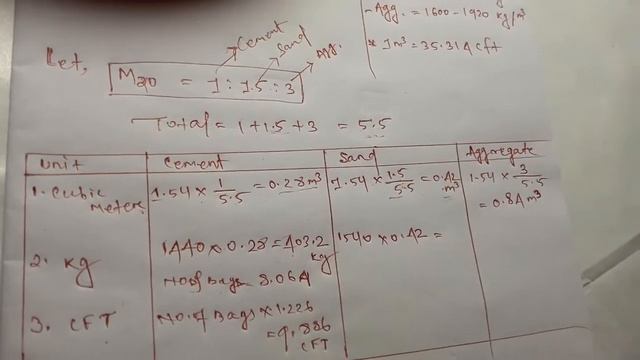 - Agg. = 1600 - 1920 kg/m³
* 1m³ = 35.314 cft
Cement
Sand
Let,
M20 = 1 : 1.5 : 3
Total = 1 + 1.5 + 3 = 5.5
Unit Cement Sand Aggregate
1. Cubic Meters 1.54 × 1/5.5 = 0.28 m³ 1.54 × 1.5/5.5 = 0.42 m³ 1.54 × 3/5.5 = 0.84 m³
2. Kg 1440 × 0.28 = 403.2 kg 1540 × 0.42 =
No of Bags 8.064
3. CFT No. of Bags × 1.226 = 9.886 CFT